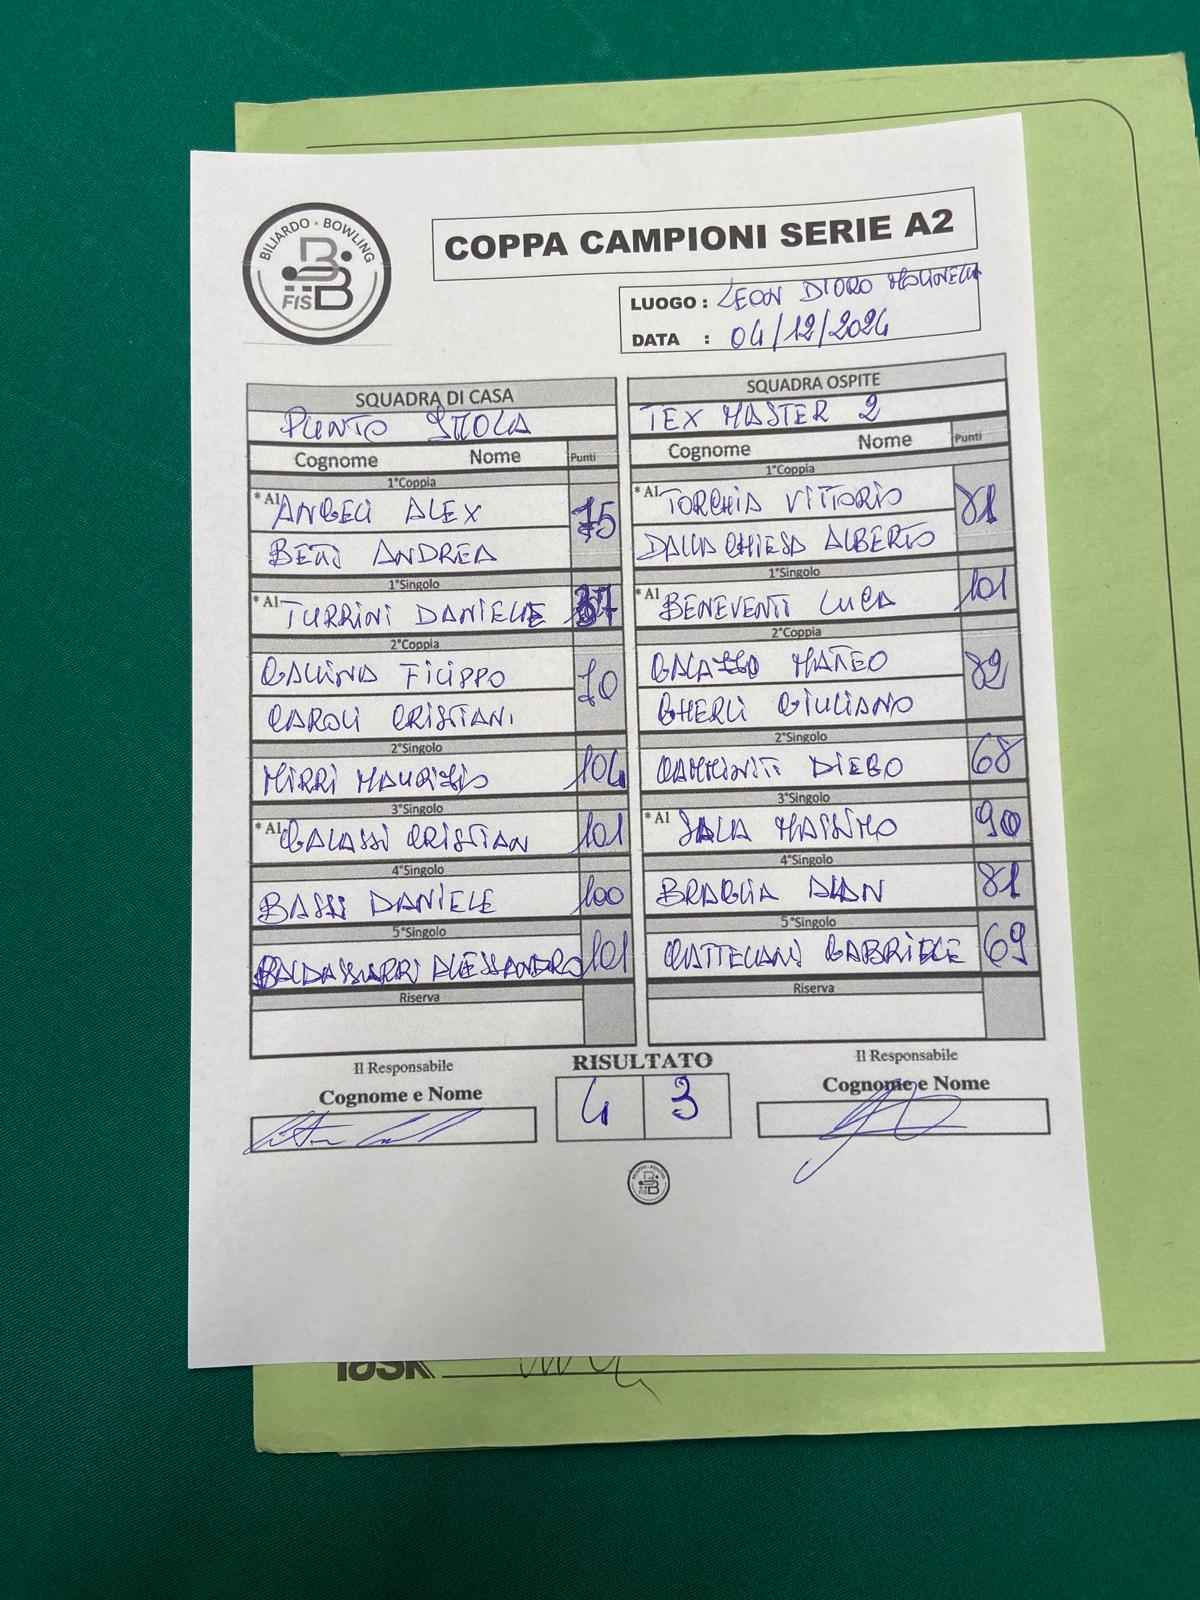 BILIARDO - BOWLING
FISBB
COPPA CAMPIONI SERIE A2
LUOGO : LEON D'ORO
DATA : 04/12/2024
SQUADRA DI CASA
PUNTO STECCA
Cognome Nome Punti
1°Coppia
* Al ANGELI ALEX 75
BETTI ANDREA
1°Singolo
* Al TURRINI DANIELE 37
2°Coppia
GALLINA FILIPPO 70
CAROLI CRISTIAN
2°Singolo
MIRRI MAURIZIO 104
3°Singolo
* Al GALASSI CRISTIAN 101
4°Singolo
BASSI DANIELE 100
5°Singolo
BALDASSARRI ALESSANDRO 101
Riserva
SQUADRA OSPITE
TEX MASTER 2
Cognome Nome Punti
1°Coppia
* Al TORCHIA VITTORIO 81
DALLA CHIESA ALBERTO
1°Singolo
* Al BENEVENTI LUCA 101
2°Coppia
GALAZZO MATTEO 82
GHERLI GIULIANO
2°Singolo
CAMMINITI DIEGO 68
3°Singolo
* Al SALA MASSIMO 90
4°Singolo
BRAGLIA ALAN 81
5°Singolo
CATTELANI GABRIELE 69
Riserva
Il Responsabile
Cognome e Nome
RISULTATO
4 3
Il Responsabile
Cognome e Nome